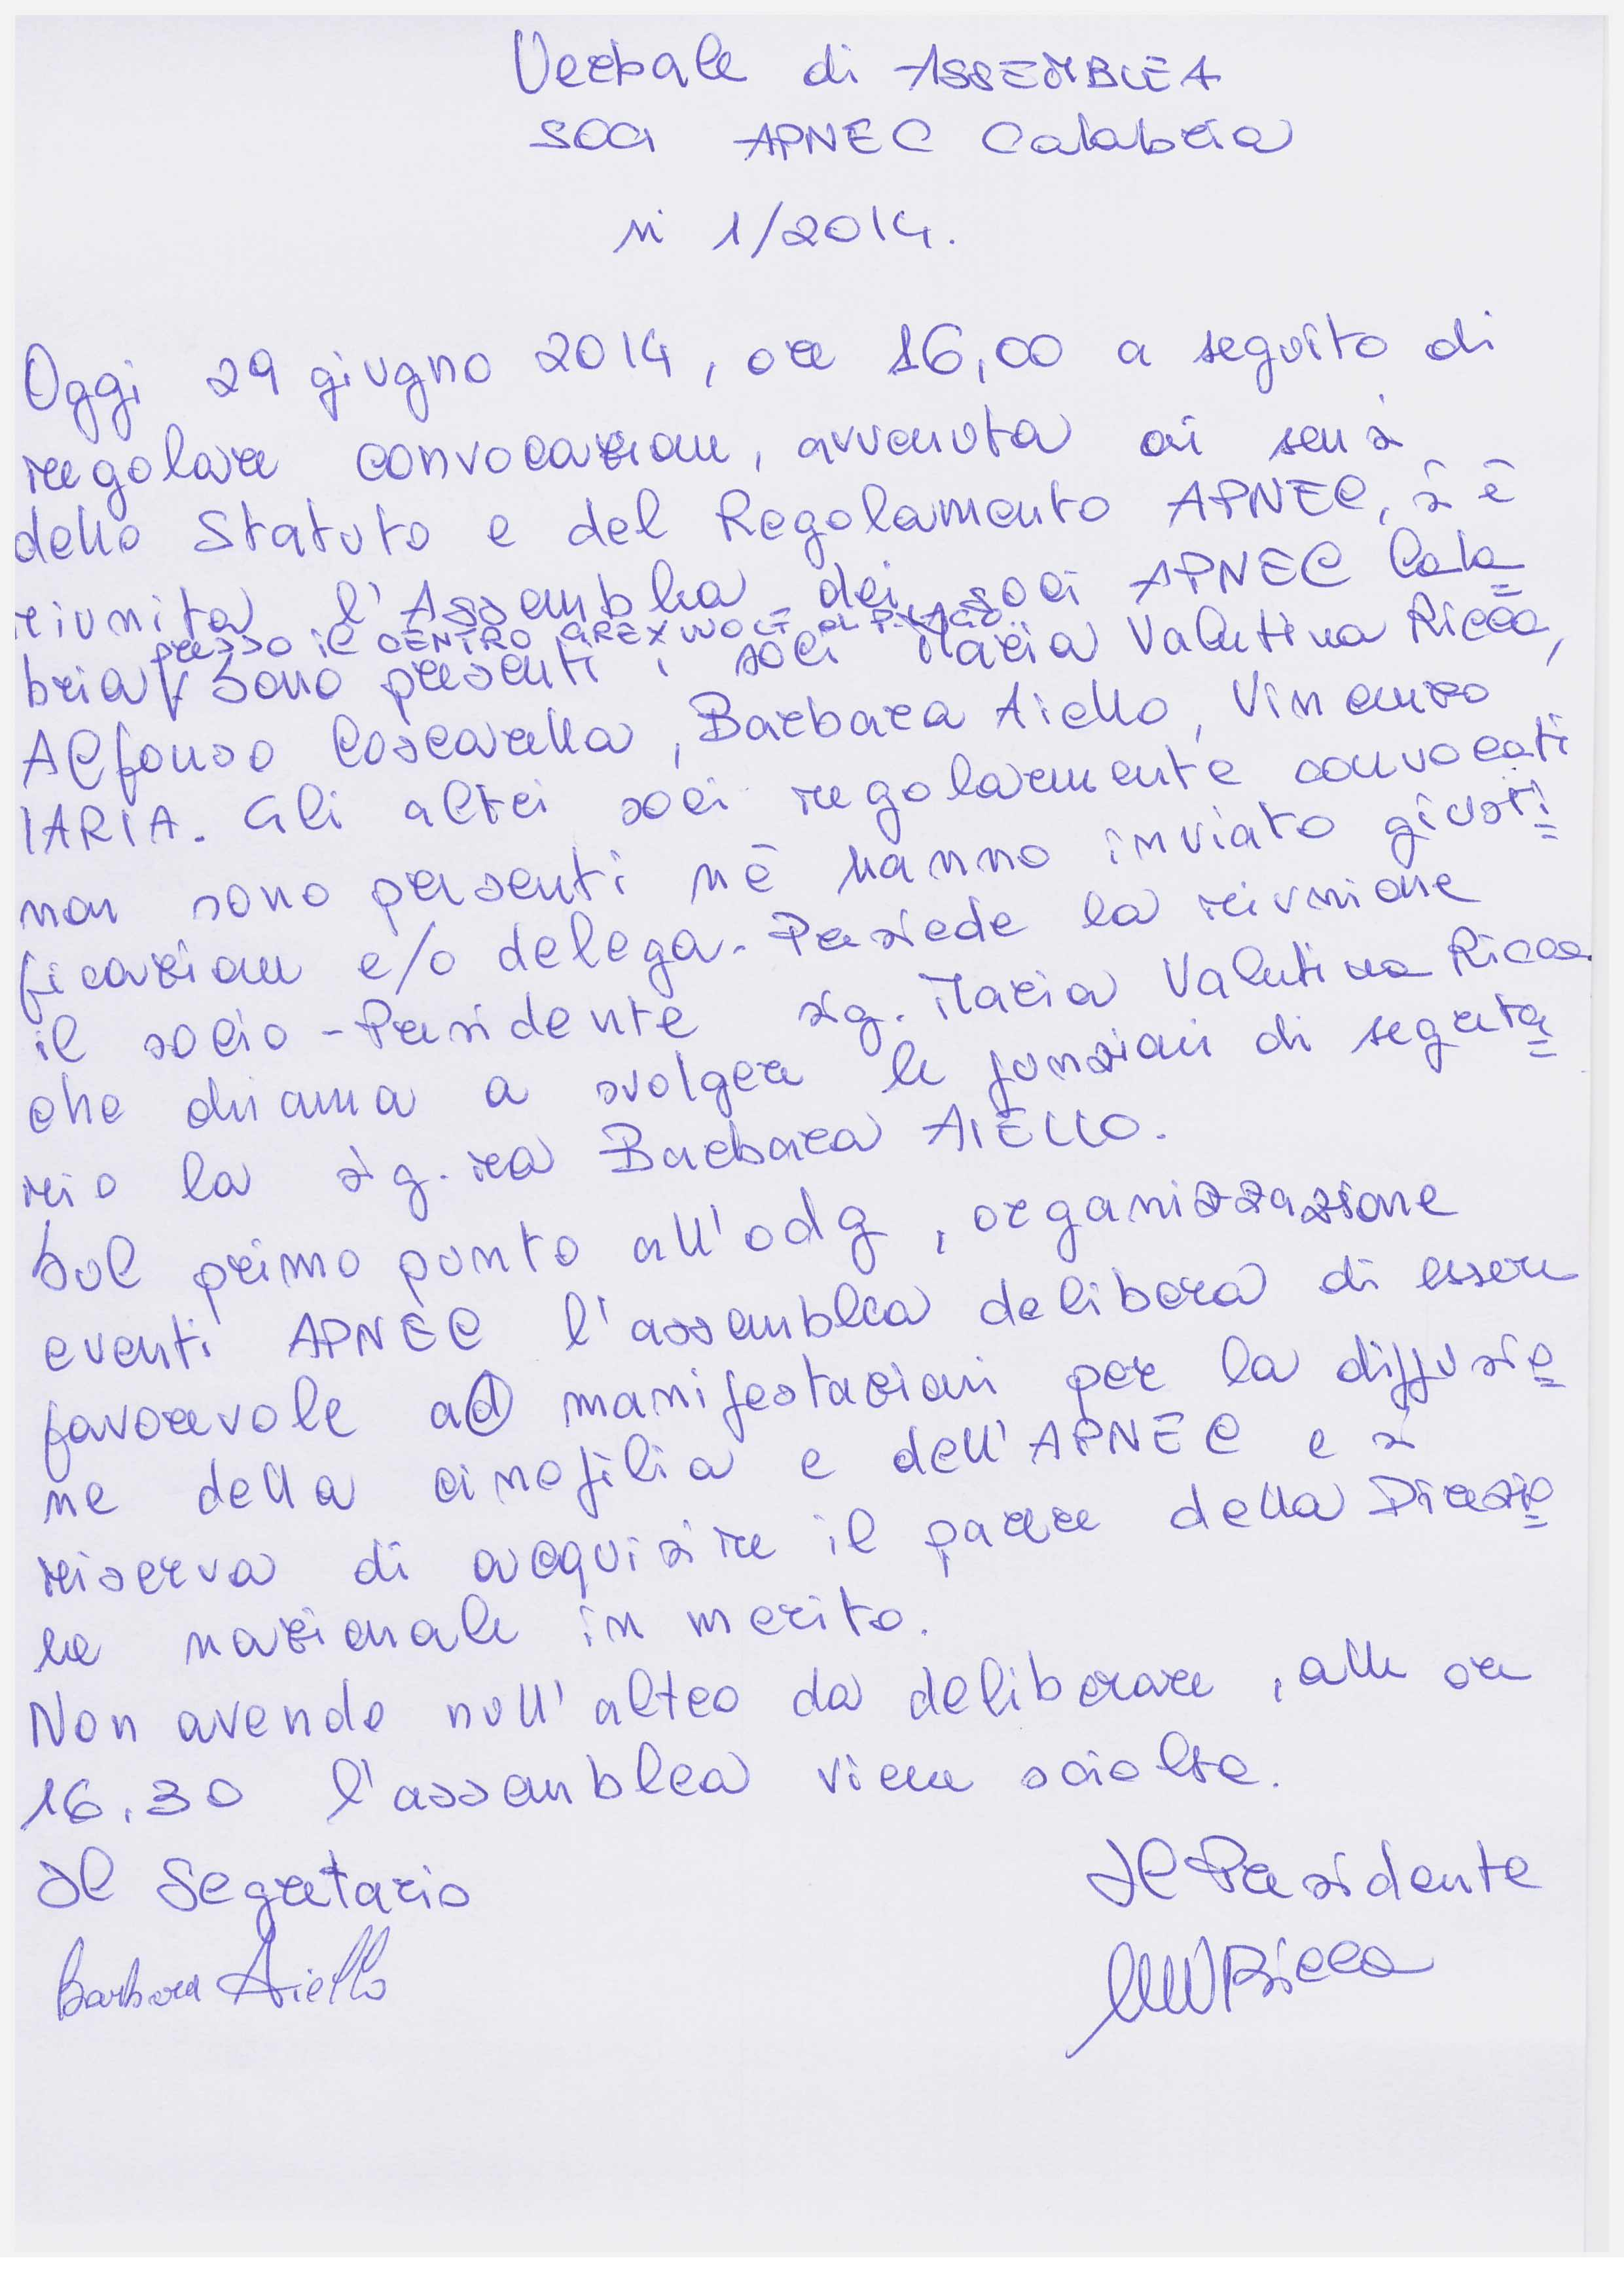 Verbale di ASSEMBLEA
SOCI APNEC Calabria
n° 1/2014.
Oggi 29 giugno 2014, ore 16,00 a seguito di
regolare convocazione, avvenuta ai sensi
dello Statuto e del Regolamento APNEC, si è
riunita l'Assemblea dei soci APNEC Cala
presso il CENTRO
bria. Sono presenti i soci Maria Valentina Ricca,
Alfonso Coscarella, Barbara Aiello, Vincenzo
IARIA. Gli altri soci regolarmente convocati
non sono presenti nè hanno inviato giusti
ficazione e/o delega. Presiede la riunione
il socio-Presidente sig. Maria Valentina Ricca
che chiama a svolgere le funzioni di segreta
rio la sig.ra Barbara AIELLO.
Sul primo punto all'odg, organizzazione
eventi APNEC l'assemblea delibera di essere
favorevole ad manifestazioni per la diffusio
ne della cinofilia e dell'APNEC e si
riserva di acquisire il parere della Direzio
ne nazionale in merito.
Non avendo null'altro da deliberare, alle ore
16.30 l'assemblea viene sciolta.
Il Segretario
Il Presidente
Barbara Aiello
MVRicca